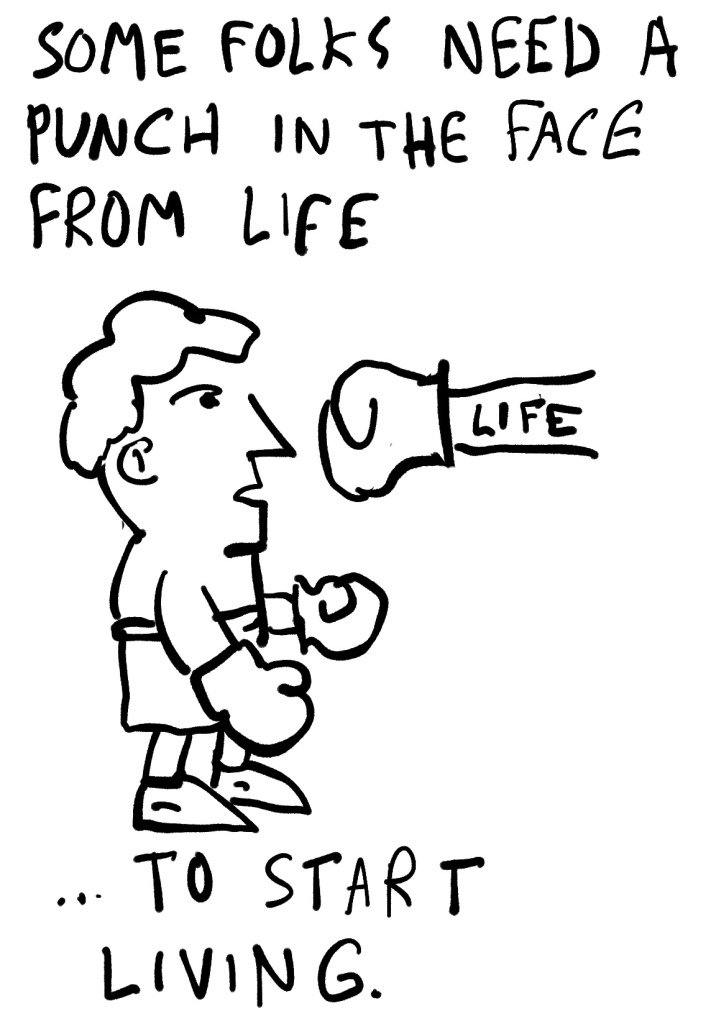 SOME FOLKS NEED A
PUNCH IN THE FACE
FROM LIFE
LIFE
... TO START
LIVING.